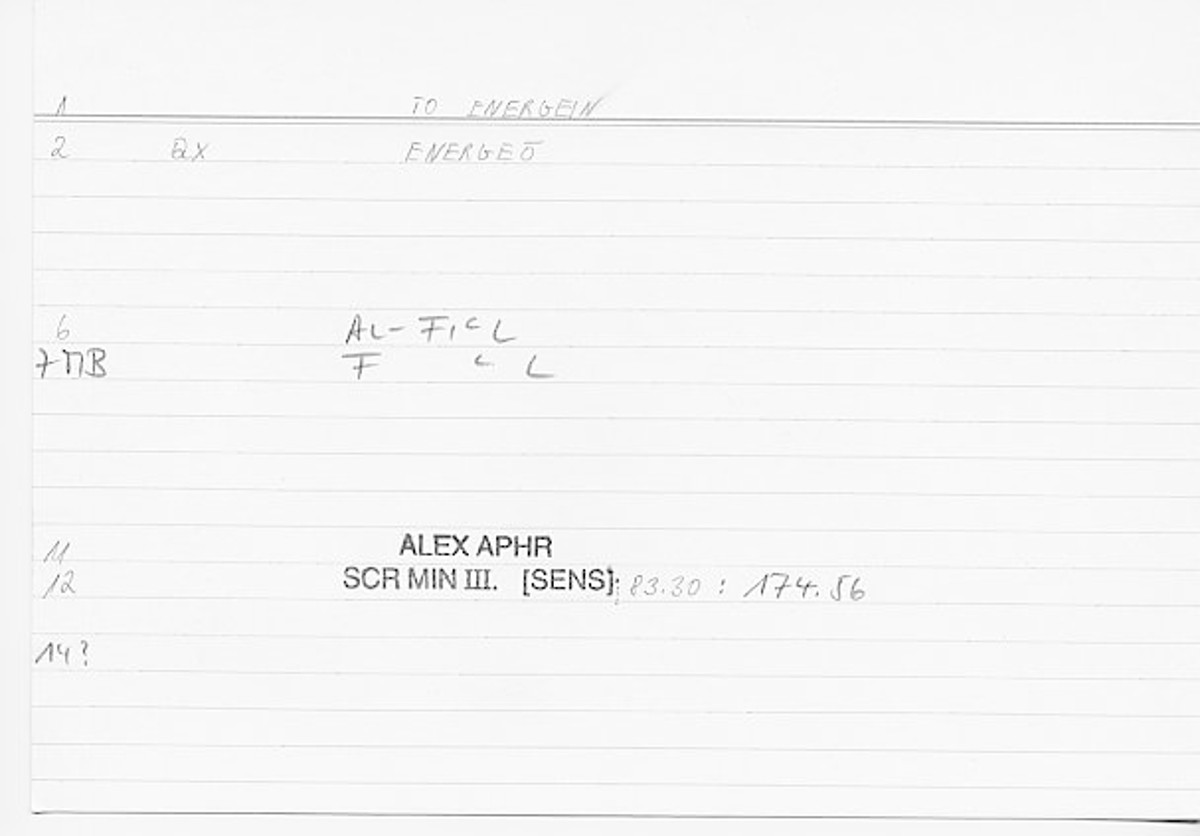 1 TO ENERGEIN
2 QX ENERGEŌ
6 AL-FIᶜL
7 MB F ᶜ L
11 ALEX APHR
12 SCR MIN III. [SENS]; 83.30 : 174.56
14?